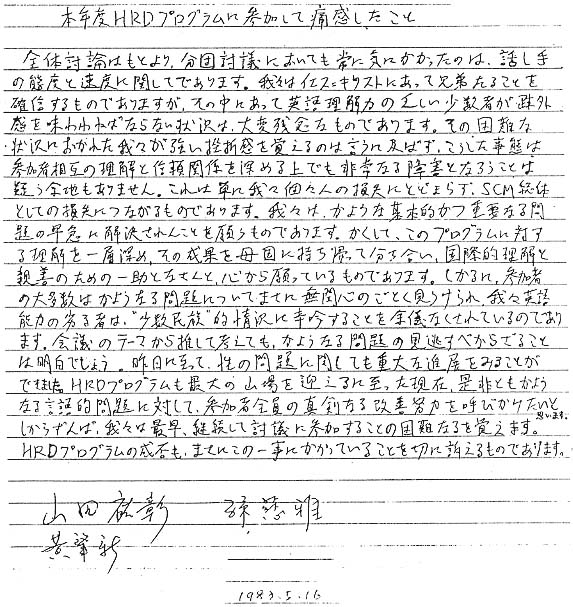 本年度HRDプログラムに参加して痛感したこと
全体討論はもとより、分団討議においても常に気にかかったのは、話し手
の態度と速度に関してであります。我々はイエス・キリストにあって兄弟たることを
確信するものでありますが、その中にあって英語理解力の乏しい少数者が疎外
感を味わわねばならない状況は、大変残念なものであります。その困難な
状況におかれた我々が強い挫折感を覚えるのは言うに及ばず、こうした事態は
参加者相互の理解と信頼関係を深める上でも非常なる障害となろうことは
疑う余地もありません。これは単に我々個々人の損失にとどまらず、SCM総体
としての損失につながるものであります。我々は、かような基本的かつ重要なる問
題の早急に解決されんことを願うものであります。かくして、このプログラムに対す
る理解を一層深め、その成果を母国に持ち帰って分ち合い、国際的理解と
親善のための一助となさんと、心から願っているものであります。しかるに、参加者
の大多数はかような問題についてまさに無関心のごとく見うけられ、我々英語
能力の劣る者は、“少数民族”的情況に辛吟することを余儀なくされているのであり
ます。会議のテーマから推して考えても、かような問題の見逃すべからざること
は明白でしょう。昨日に至って、性の問題に関しても重大な進展をみることが
でき、HRDプログラムも最大の山場を迎えるに至った現在、是非ともかよう
なる言語的問題に対して、参加者全員の真剣なる改善努力を呼びかけたいと
思います。
しからずんば、我々は最早、継続して討議に参加することの困難なるを覚えます。
HRDプログラムの成否も、まさにこの一事にかかっていることを切に訴えるものであります。
山田 彰 慈雅
黄肇新
1983.5.16